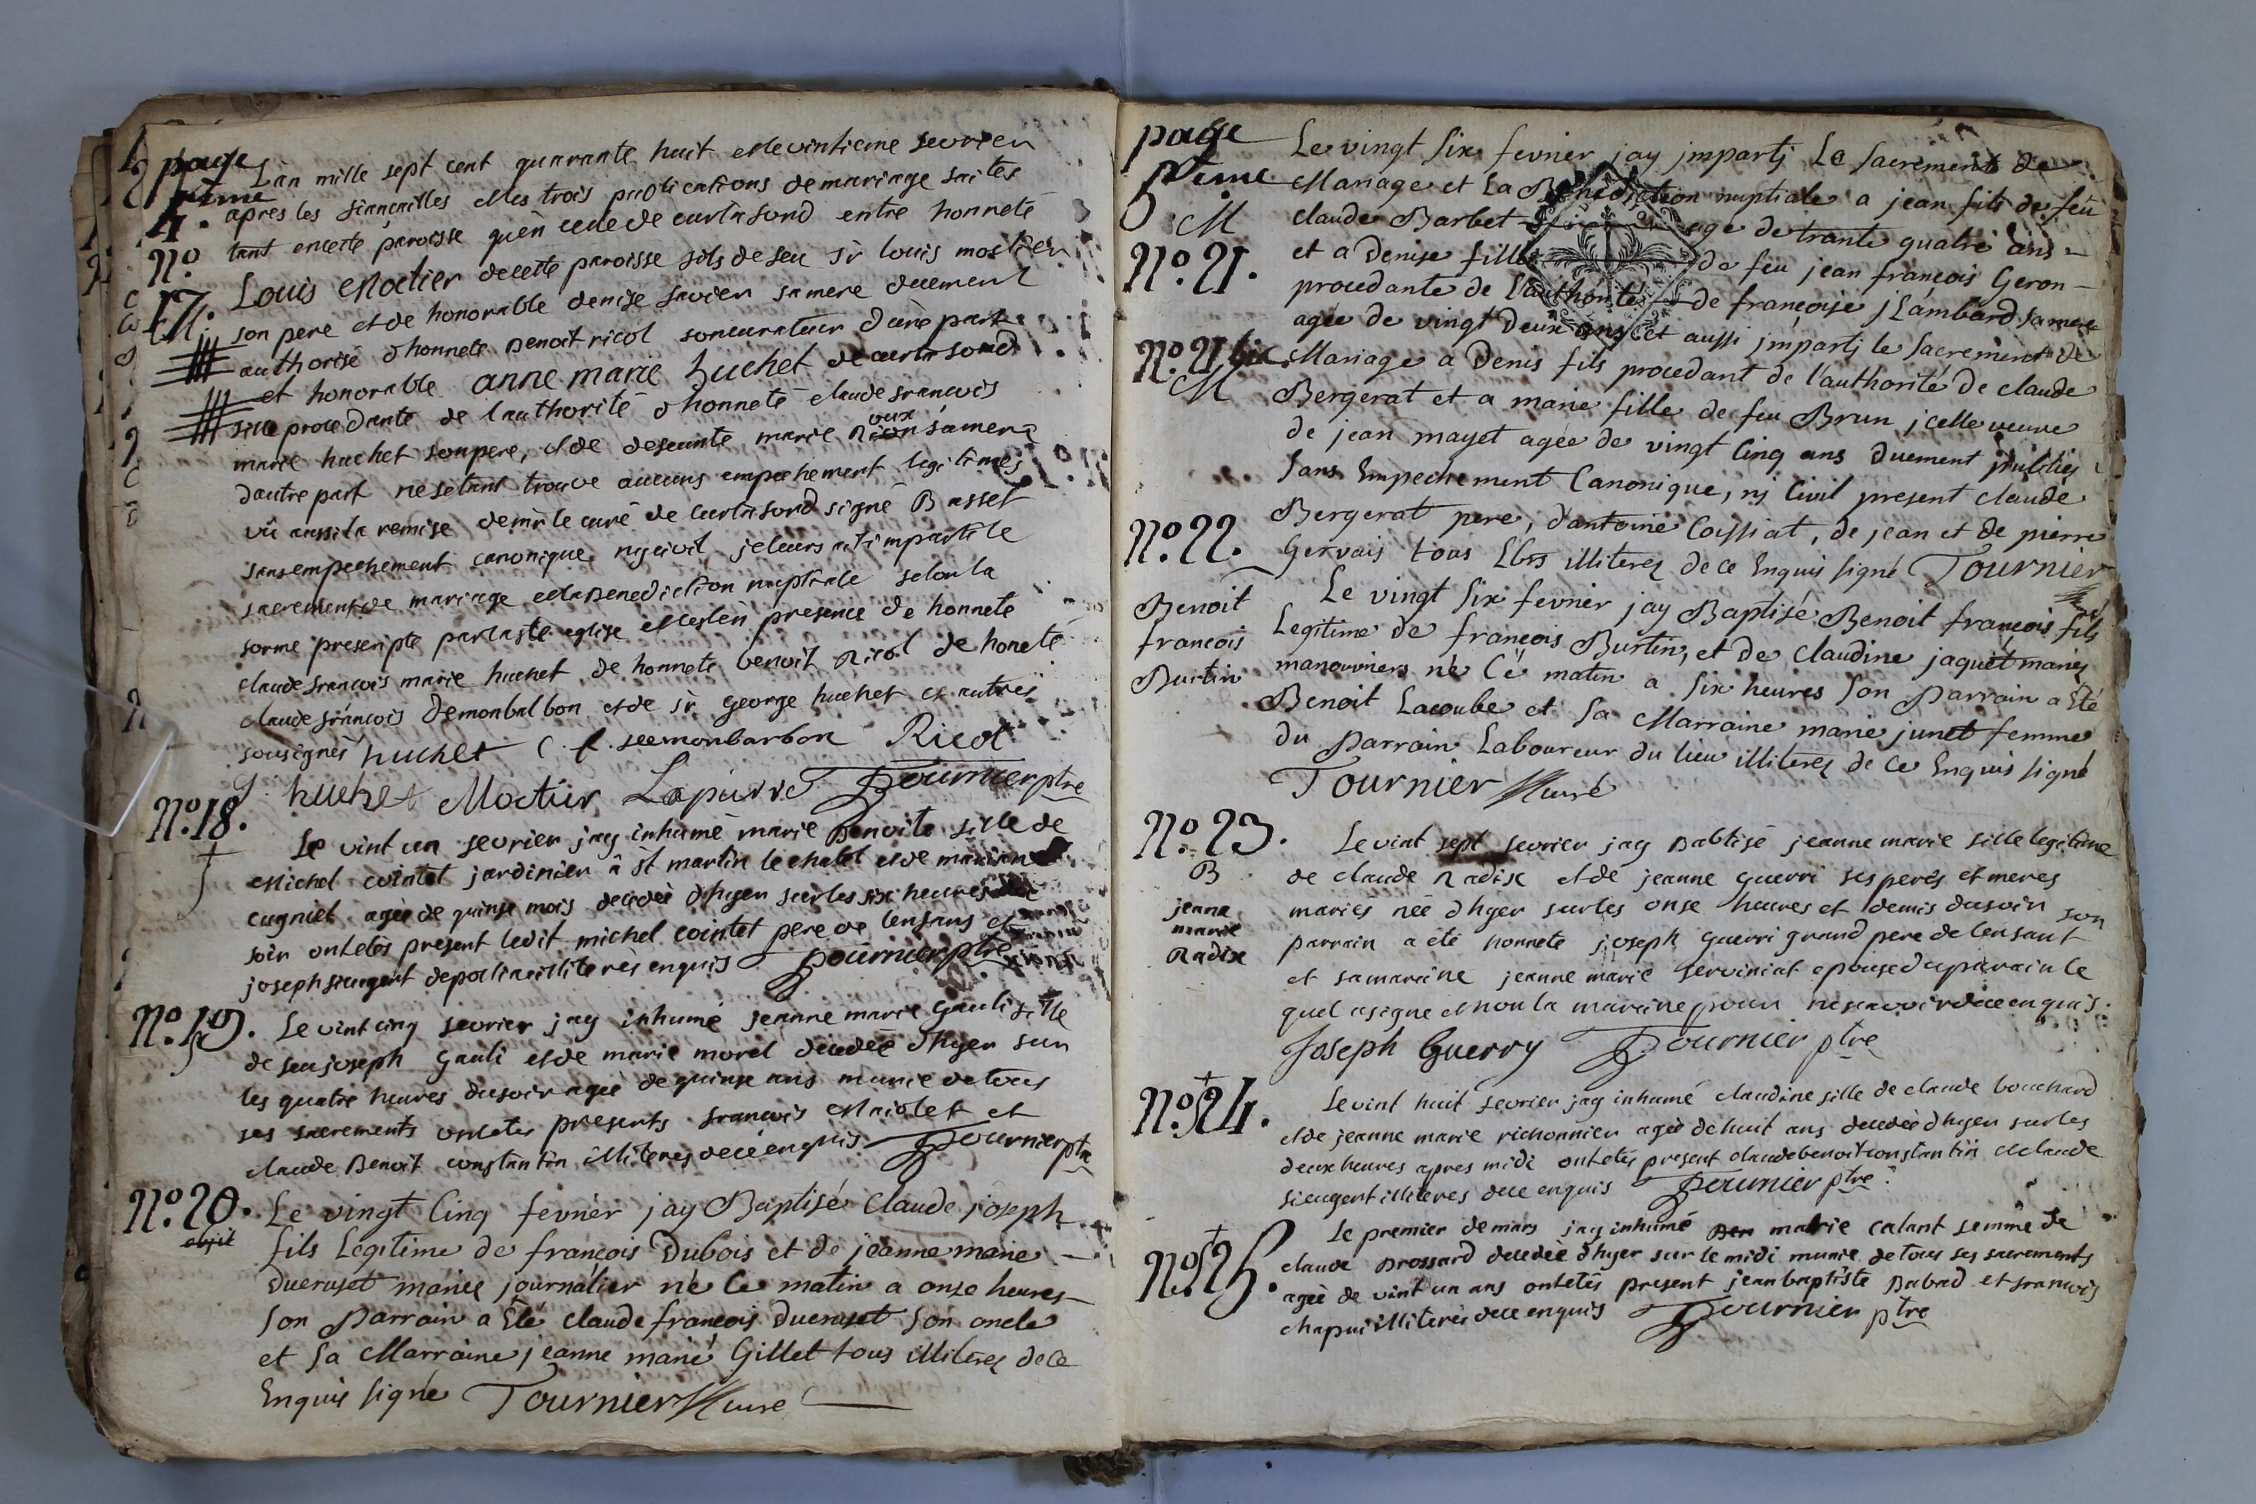 page
4.eme
Lan mille sept cent quarante huit et le vintieme fevrier
apres les fiancailles et les trois publications de mariage faites
tant en cette paroisse qu'en celle de curtafond entre honnete
No 17.
M
Louis Moctier de cette paroisse fils de feu sr louis moctier
son pere et de honorable denise savien sa mere duement
authorisé d honnete Benoit ricol son curateur d'une part
et honorable anne marie huchet de curtafond
fille procedante de l authorité d honneté claude francois
marie huchet son pere, et de defeunte marie roux sa mere
dautre part ne setant trouve aucuns empechement legitimes
vû aussi la remise de mr le curé de curtafond signé Basset
sans empechement canonique ny civil je leurs ai imparti le
sacrement de mariage et la Benediction nuptiale selon la
forme prescripte par la ste eglise et ce en presence de honnete
claude francois marie huchet de honnete benoit Ricol de honeté
claude francois demonbalbon et de sr george huchet et autres
sousignés huchet C. f. demonbarbon Ricol
G. huchet Moctier Lapierre Tournier ptre
No. 18.
Le vint un fevrier jay inhumé marie Benoite fille de
Michel cointet jardinier â st martin le chatel et de mariane
cugniet agée de quinse mois decedée d hyer sur les six heures du
soir ont etés present ledit michel cointet pere de lenfans et
joseph sieugent de poliaci illiterés enquis Tournier ptre
No. 19.
Le vint cinq fevrier jay inhumé jeanne marie Gauli fille
de feu joseph Gauli et de marie morel decedée d hyer sur
les quatre heures du soir agée de quinse ans munie de tous
ses sacrements ont etés presents francois Maiolet et
claude Benoit constantin illiteres de ce enquis Tournier ptre
No. 20.
obiit
Le vingt Cinq fevrier jay Baptisé Claude joseph
fils Legitime de françois Dubois et de jeanne marie
ducruset mariés journalier né le matin a onze heures
son Parrain a Eté claude françois ducruset son oncle
et sa Marraine jeanne marie Gillet tous illiterez de ce
Enquis signé Tournier curé
page
5.eme
M
No. 21.
Le vingt six fevrier jay impartj Le sacrement de
Mariage et La Benediction nuptiale a jean fils de feu
claude Barbet agé de trante quatre ans
et a Denise fille de feu jean françois Geron
procedante de l'authorité de françoise jLambard sa mere
agée de vingt deux ans et aussi jmpartj le sacrement de
No. 21 bis
M
Mariage a Denis fils procedant de l'authorité de claude
Bergerat et a marie fille de feu Brun jcelle veuve
de jean mayet agée de vingt Cinq ans duement publiés
sans Empechement Canonique, nj Civil present claude
Bergerat pere, d'antoine Coissiat, de jean et de pierre
Gervais tous Lbrs illiterez de ce Enquis signé Tournier
No. 22.
Benoit
francois
Burtin
Le vingt six fevrier jay Baptisé Benoit françois fils
Legitime de françois Burtin, et de claudine jaquet mariés
manouvriers né Cé matin a six heures son Parrain a Eté
Benoit Lacoube et sa Marraine marie junet femme
du Parrain Laboureur du lieu illiterez de ce Enquis signé
Tournier curé
No. 23.
B
jeanne
marie
Radix
Le vint sept fevrier jay Babtisé jeanne marie fille legitime
de claude Radix et de jeanne guerri ses perés et meres
mariés née d hyer sur les onse heures et demis du soir son
parrain a été honnete joseph guerri grand pere de lenfant
et sa maraine jeanne marie serviniat epouse du parain le
quel a signe et non la maraine pour ne scavoir de ce enquis.
Joseph Guerry Tournier ptre
No. 24.
Le vint huit fevrier jay inhumé claudine fille de claude bouchard
et de jeanne marie richonnier agée de huit ans decedée d hyer sur les
deux heures apres midi ont etés present claude benoit constantin et claude
sieugent illiteres de ce enquis Tournier ptre
No. 25.
Le premier de mars jay inhumé marie calant femme de
claude Brossard decedee d hyer sur le midi munie de tous ses sacrements
agée de vint un ans ont etés present jean baptiste Babad et francois
chapui illiterés de ce enquis Tournier ptre